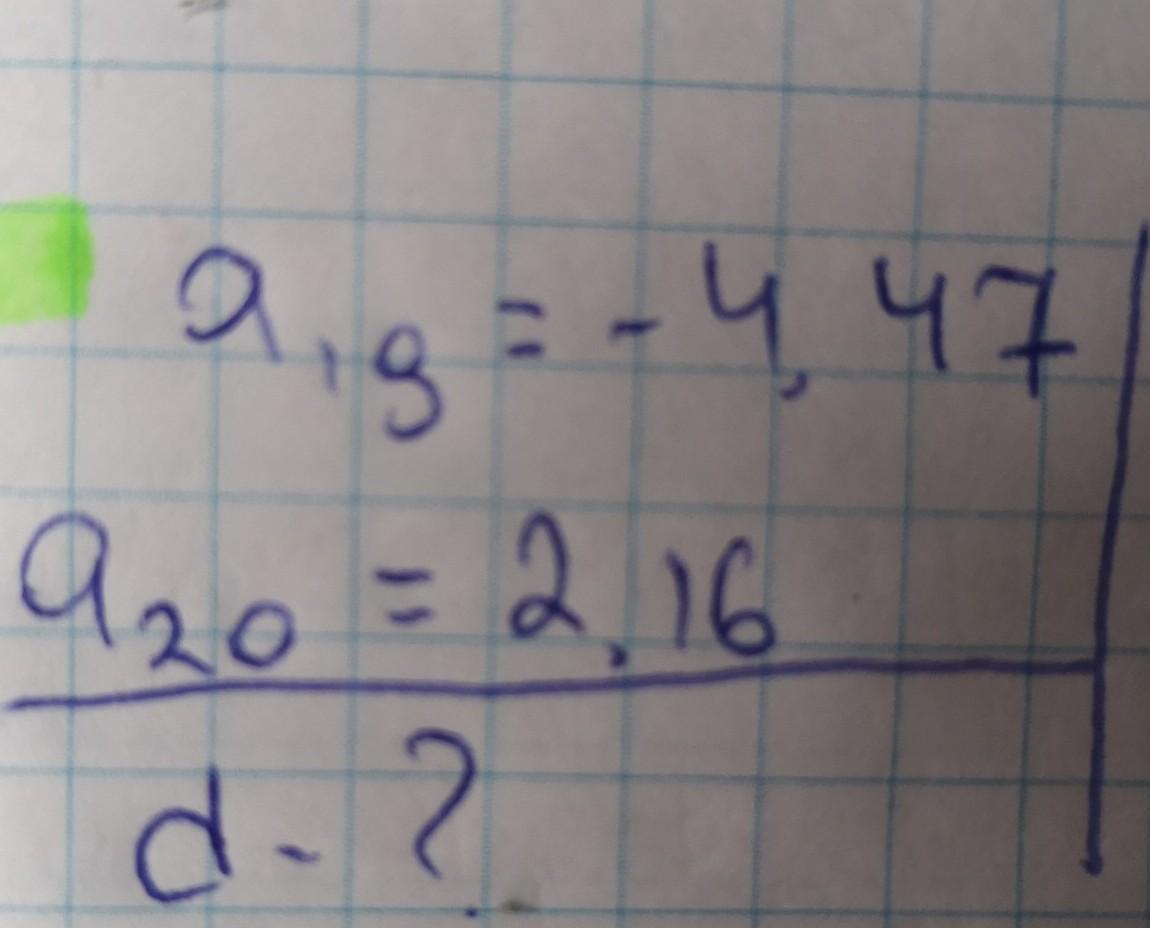 a₁₉ = -4,47
a₂₀ = 2,16
d - ?